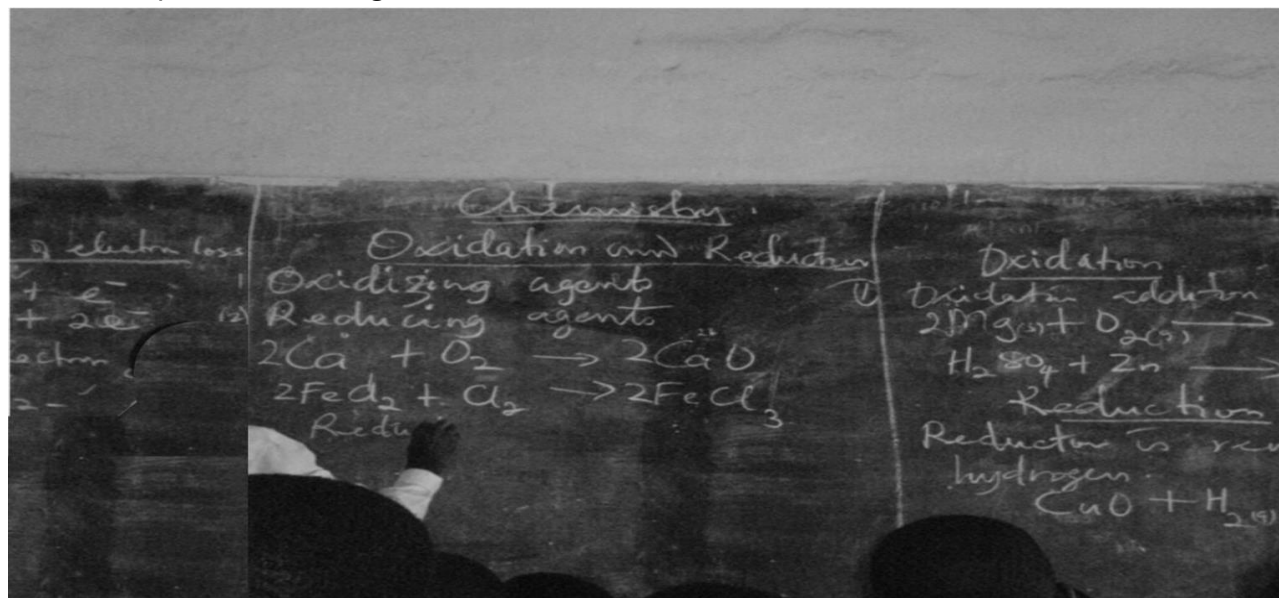 of electron loss
+ e⁻
+ 2e⁻
2-
Chemistry.
Oxidation and Reduction
Oxidizing agents
(2) Reducing agents
2Ca + O₂ → 2CaO
2FeCl₂ + Cl₂ → 2FeCl₃
Redu
Oxidation
(1) Oxidation addition
2Mg(s) + O₂(g) →
H₂SO₄ + Zn →
Reduction
Reduction is
hydrogen.
CuO + H₂(g)